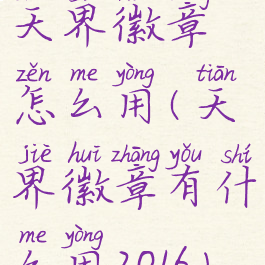 天界徽章
zěn me yòng tiān
怎么用(天
jiè huī zhāng yǒu shí
界徽章有什
me yòng
么用2016)